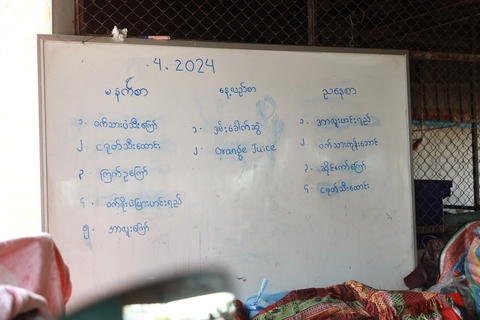 .4.2024
မနက်စာ
၁. ဝက်သားပဲသီးကြော်
၂. ငရုတ်သီးထောင်း
၃. ကြက်ဥကြော်
၄. ဝက်ရိုးပဲပြားဟင်းရည်
၅. အာလူးကြော်
နေ့လည်စာ
၁. ခေါက်ဆွဲ
၂. Orange Juice
ညနေစာ
၁. အာလူးဟင်းရည်
၂. ဝက်သား
၃. ကြော်
၄. ငရုတ်သီးထောင်း